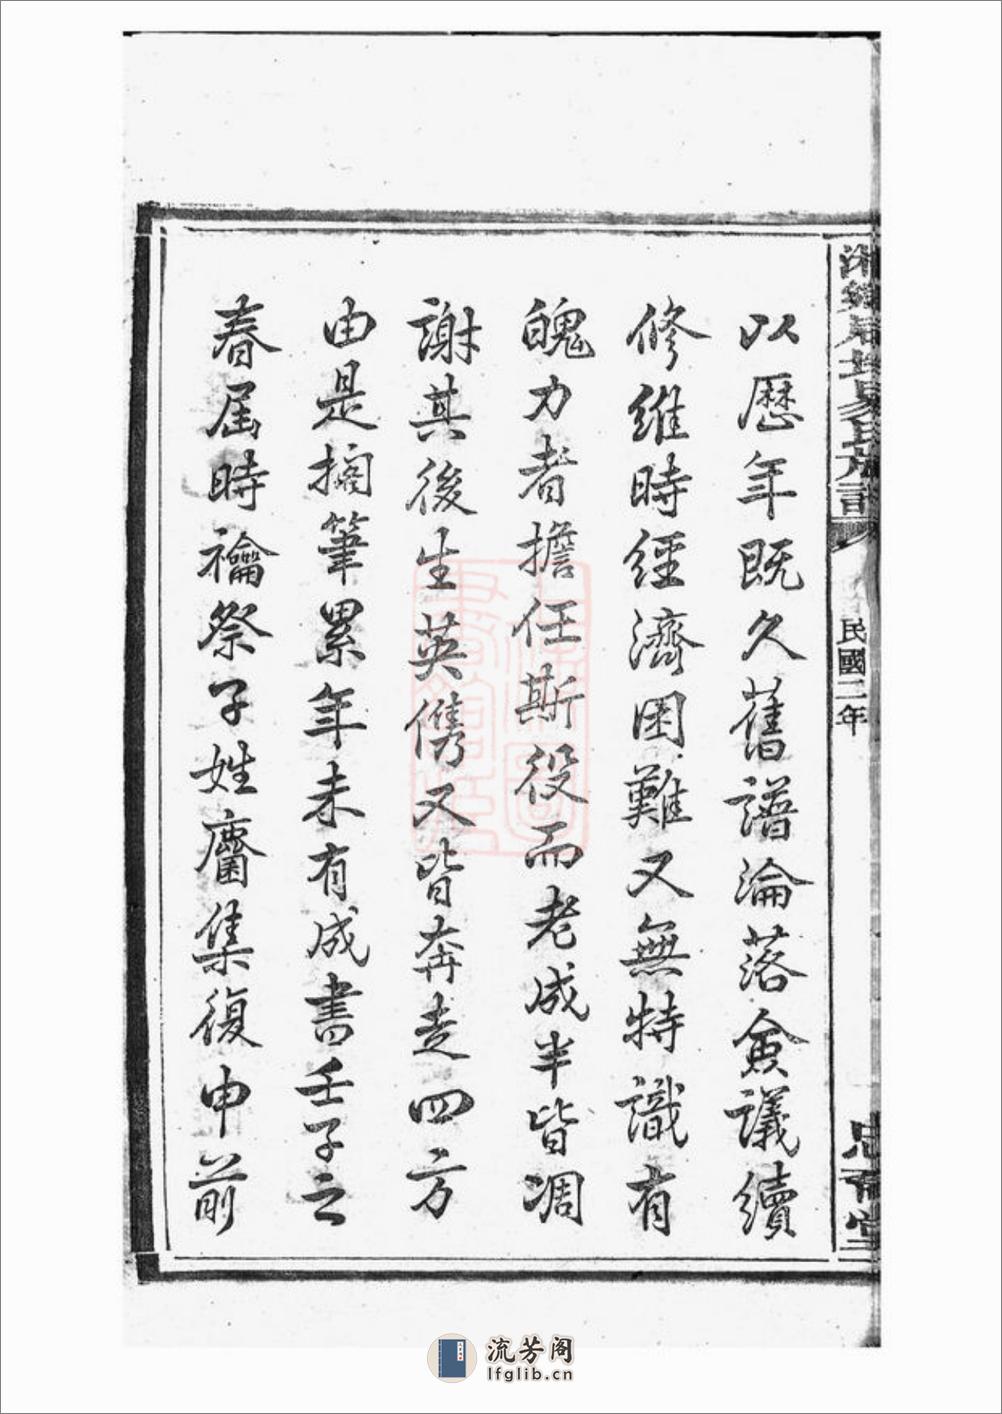 以歷年既久舊譜淪落僉議續
修維時經濟困難又無特識有
魄力者擔任斯役而老成半皆凋
謝其後生英儁又皆奔走四方
由是擱筆累年未有成書壬子之
春屆時禴祭子姓麕集復申前
易氏族譜
民國二年
堂
流芳阁
lfglib.cn